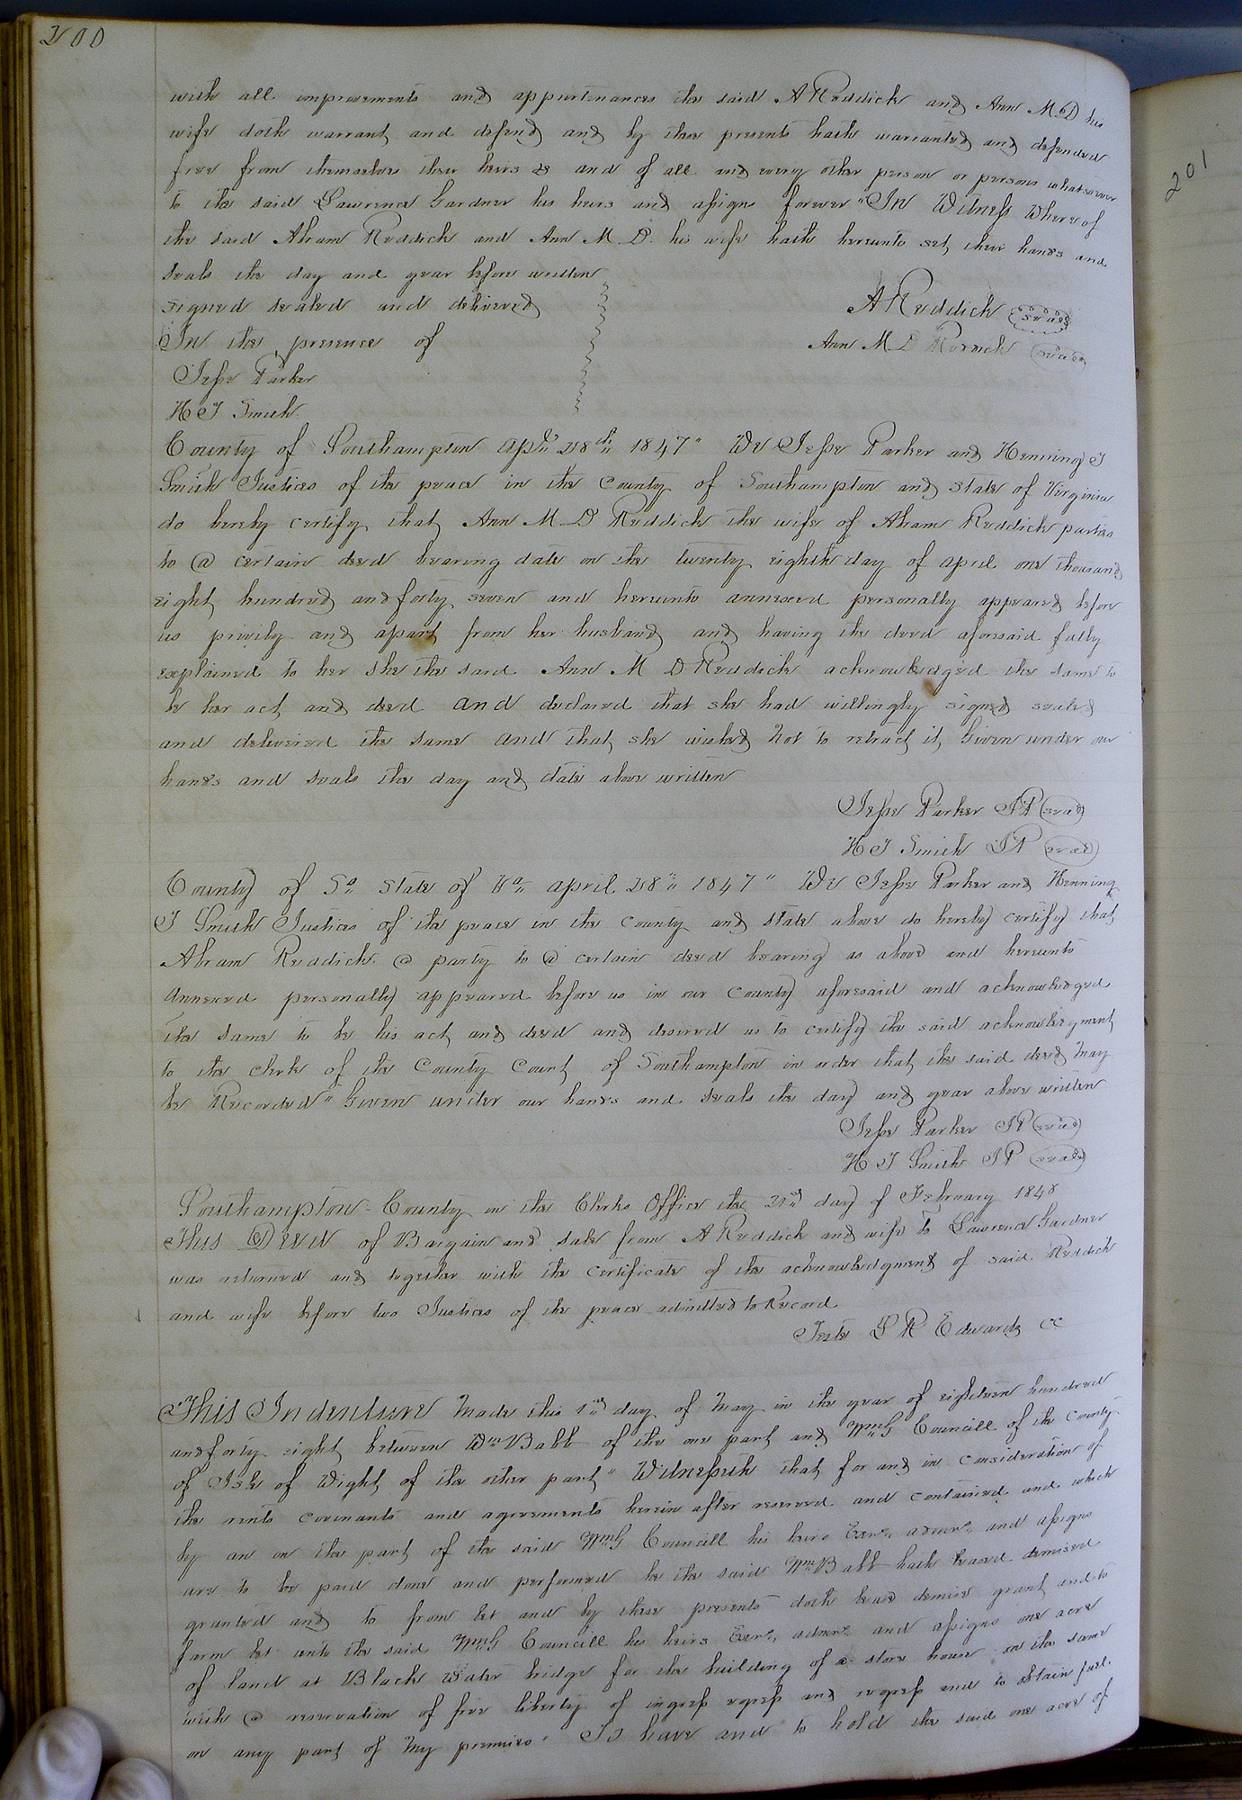 200
201
with all improvements and appurtenances the said A Reddick and Ann M D his
wife doth warrant and defend and by these presents hath warranted and defended
free from themselves their heirs &c and of all and every other person or persons whatsoever
to the said Lawrence Gardner his heirs and assigns forever " In Witness Whereof
the said Abram Reddick and Ann M D. his wife hath hereunto set their hands and
seals the day and year before written
signed sealed and delivered
In the presence of
Jesse Parker
H T Smith
A Reddick seal
Ann M D Reddick seal
County of Southampton Apl 28th 1847" We Jesse Parker and Henning T
Smith Justices of the peace in the County of Southampton and State of Virginia
do hereby certify that Ann M D Reddick the wife of Abram Reddick parties
to @ certain deed bearing date on the twenty eighth day of April one thousand
eight hundred and forty seven and hereunto annexed personally appeared before
us privily and apart from her husband and having the deed aforesaid fully
explained to her she the said Ann M D Reddick acknowledged the same to
be her act and deed and declared that she had willingly signed sealed
and delivered the same and that she wished not to retract it, Given under our
hands and seals the day and date above written
Jesse Parker JP seal
H T Smith JP seal
County of So State of Va April 28th 1847" We Jesse Parker and Henning
T Smith Justices of the peace in the County and State above do hereby certify that
Abram Reddick @ party to @ certain deed bearing as above and hereunto
annexed personally appeared before us in our County aforesaid and acknowledged
the same to be his act and deed and desired us to certify the said acknowledgment
to the clerk of the County Court of Southampton in order that the said deed may
be Recorded" Given under our hands and seals the day and year above written
Jesse Parker JP seal
H T Smith JP seal
Southampton County in the Clerks Office the day of February 1848
This Deed of Bargain and sale from A Reddick and wife to Lawrence Gardner
was returned and together with the certificate of the acknowledgment of said Reddick
and wife before two Justices of the peace admitted to Record
Teste L R Edwards CC
This Indenture Made this 1st day of May in the year of eighteen hundred
and forty eight between Wm Babb of the one part and Wm G Councill of the County
of Isle of Wight of the other part" Witnesseth that for and in consideration of
the rents covenants and agreements herein after reserved and contained and which
by an on the part of the said Wm G Councill his heirs Exrs, admrs, and assigns
are to be paid done and performed he the said Wm Babb hath leased demised
granted and to from let and by these presents doth lease demise grant and to
farm let unto the said Wm G Councill his heirs Exrs, admrs and assigns one acre
of land at Black Water bridge for the building of a store house on the same
with @ reservation of free liberty of ingress egress and regress and to obtain fuel
on any part of My premises" To have and to hold the said one acre of